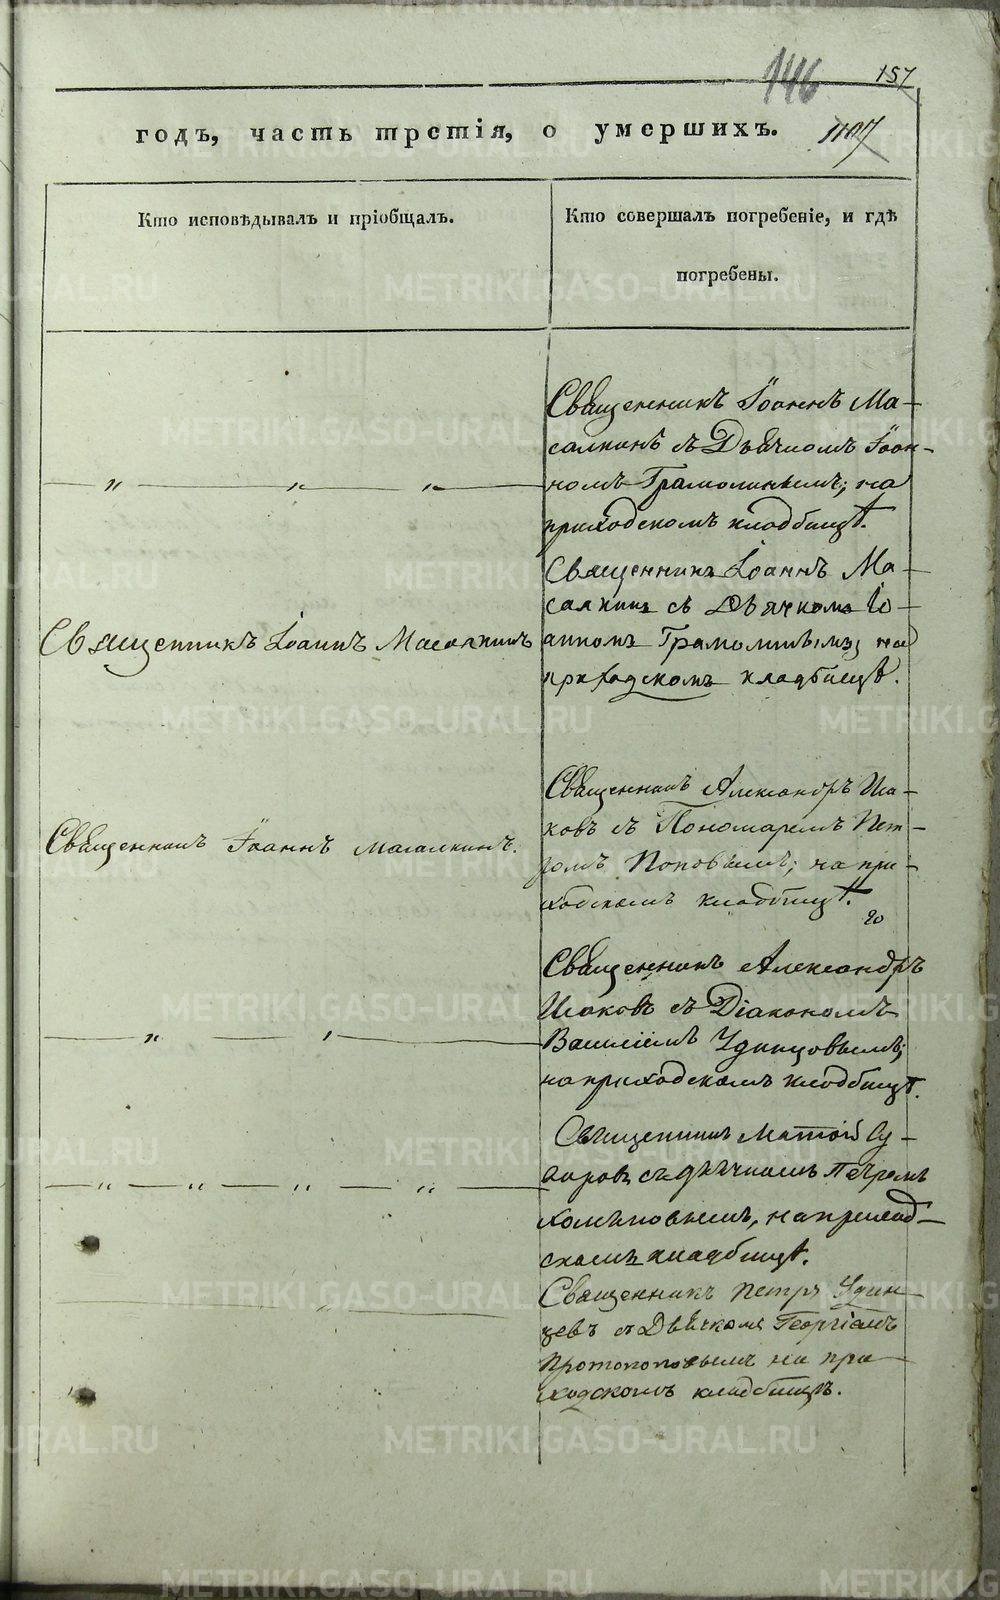 146
157
годъ, часть третія, о умершихъ. 1107
Кто исповѣдывалъ и пріобщалъ.
Кто совершалъ погребеніе, и гдѣ
погребены.
Священникъ Іоаннъ Ма-
салкинъ съ Дьячкомъ Іоан-
номъ Грамолинымъ; на
приходскомъ кладбищѣ.
Священникъ Іоаннъ Масалкинъ
Священникъ Іоаннъ Ма-
салкинъ съ Дьячкомъ Іо-
анномъ Грамолинымъ; на
приходскомъ кладбищѣ.
Священникъ Іоаннъ Масалкинъ.
Священникъ Александръ Иса-
ковъ съ Пономаремъ Пет-
ромъ Поповымъ; на при-
ходскомъ кладбищѣ.
Священникъ Александръ
Исаковъ съ Діакономъ
Василіемъ Удинцовымъ;
на приходскомъ кладбищѣ.
Священникъ
съ дьячкомъ Петромъ
на приход-
скомъ кладбищѣ.
Священникъ Петръ Удин-
цевъ с Дьячкомъ Георгіемъ
Протопоповымъ на при-
ходскомъ кладбищѣ.
METRIKI.GASO-URAL.RU